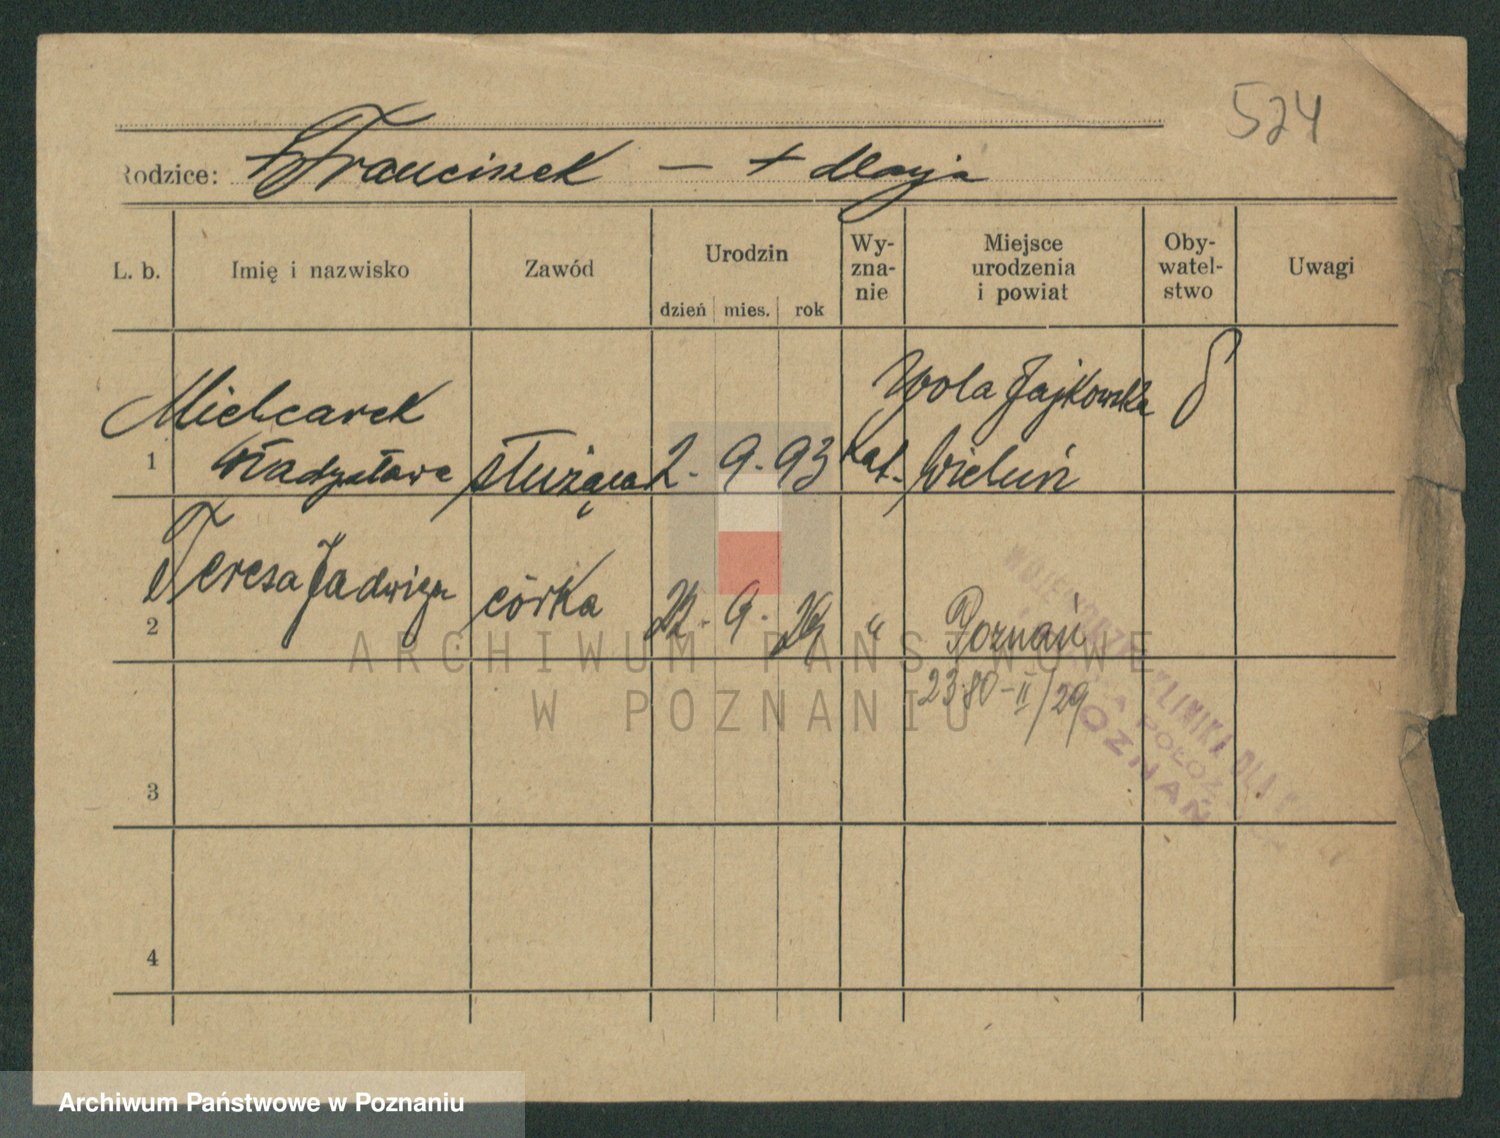 524
Rodzice: + Franciszek — + Marja
L. b.
Imię i nazwisko
Zawód
Urodzin
dzień mies. rok
Wy-
zna-
nie
Miejsce
urodzenia
i powiat
Oby-
watel-
stwo
Uwagi
Mielcarek
Wola Jajkowska
1 Władysława służąca 2. 9. 93 kat. Wieluń
Teresa Jadwiga córka 22. 9. 29 " Poznań
2
2380-II/29
3
4
KLINIKA DLA
POZNAŃ
ARCHIWUM PAŃSTWOWE
W POZNANIU
Archiwum Państwowe w Poznaniu